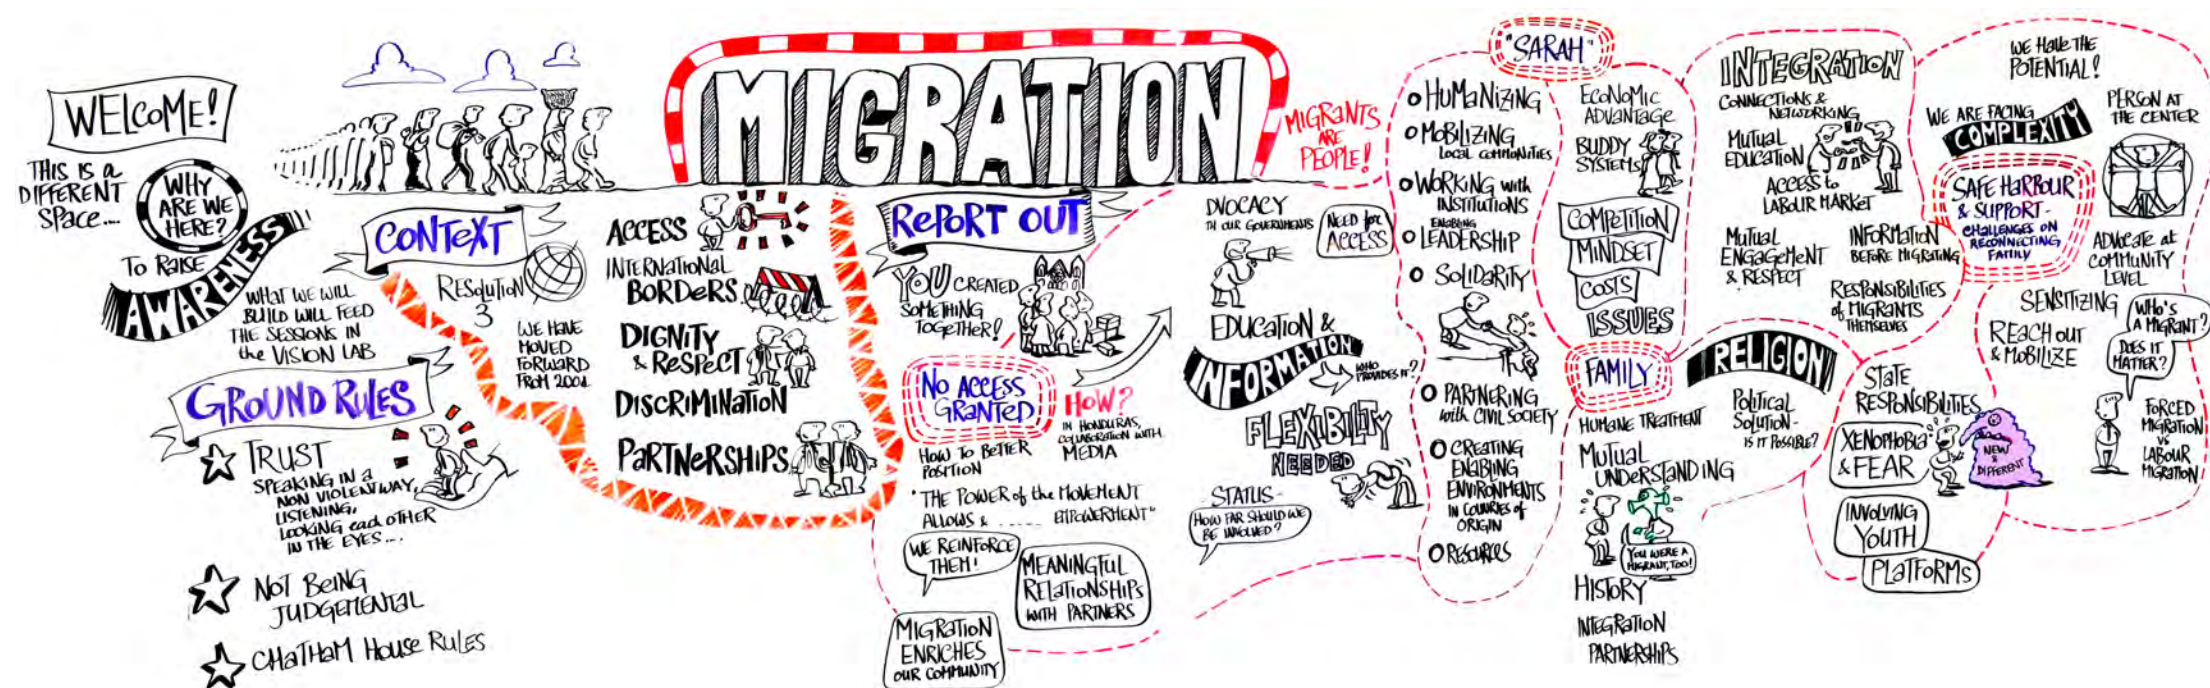 WELCOME!
THIS IS a
DIFFERENT
SPACE....
WHY
ARE WE
HERE?
To RAISE
AWARENESS
WHAT WE WILL
BUILD WILL FEED
THE SESSIONS IN
the VISION LAB
GROUND RULES
TRUST
SPEAKING IN a
NON VIOLENT WAY,
LISTENING,
LOOKING each OTHER
IN THE EYES...
NOT BEING
JUDGEMENTAL
CHATHAM HOUSE RULES
CONTEXT
RESOLUTION
3
WE HAVE
MOVED
FORWARD
FROM 2001
MIGRATION
ACCESS
INTERNATIONAL
BORDERS
DIGNITY
& RESPECT
DISCRIMINATION
PARTNERSHIPS
REPORT OUT
YOU CREATED
SOMETHING
TOGETHER!
NO ACCESS
GRANTED
HOW?
IN HONDURAS,
COLLABORATION WITH
MEDIA
HOW TO BETTER
POSITION
"THE POWER of the MOVEMENT
ALLOWS & ..... EMPOWERMENT"
WE REINFORCE
THEM!
MEANINGFUL
RELATIONSHIPS
WITH PARTNERS
MIGRATION
ENRICHES
OUR COMMUNITY
MIGRANTS
ARE
PEOPLE!
DVOCACY
TH OUR GOVERNMENTS
NEED for
ACCESS
EDUCATION &
INFORMATION
WHO
PROVIDES IT?
FLEXIBILITY
NEEDED
-STATUS-
HOW FAR SHOULD WE
BE INVOLVED?
"SARAH"
HUMANIZING
MOBILIZING
LOCAL COMMUNITIES
WORKING with
INSTITUTIONS
ENABLING
LEADERSHIP
SOLIDARITY
PARTNERING
with CIVIL SOCIETY
CREATING
ENABLING
ENVIRONMENTS
IN COUNRIES of
ORIGIN
RESOURCES
ECONOMIC
ADVANTAGE
BUDDY
SYSTEMS
COMPETITION
MINDSET
COSTS
ISSUES
FAMILY
HUMANE TREATMENT
MUTUAL
UNDERSTANDING
YOU WERE A
MIGRANT, TOO!
HISTORY
INTEGRATION
PARTNERSHIPS
INTEGRATION
CONNECTIONS &
NETWORKING
MUTUAL
EDUCATION
ACCESS to
LABOUR MARKET
MUTUAL
ENGAGEMENT
& RESPECT
INFORMATION
BEFORE MIGRATING
RESPONSIBILITIES
of MIGRANTS
THEMSELVES
RELIGION
POLITICAL
SOLUTION-
IS IT POSSIBLE?
WE HAVE THE
POTENTIAL!
WE ARE FACING
COMPLEXITY
PERSON AT
THE CENTER
SAFE HARBOUR
& SUPPORT-
CHALLENGES ON
RECONNECTING
FAMILY
ADVOCATE at
COMMUNITY
LEVEL
SENSITIZING
REACH OUT
& MOBILIZE
WHO'S
A MIGRANT?
DOES IT
MATTER?
FORCED
MIGRATION
VS
LABOUR
MIGRATION
STATE
RESPONSIBILITIES
XENOPHOBIA
& FEAR
NEW
&
DIFFERENT
INVOLVING
YOUTH
PLATFORMS